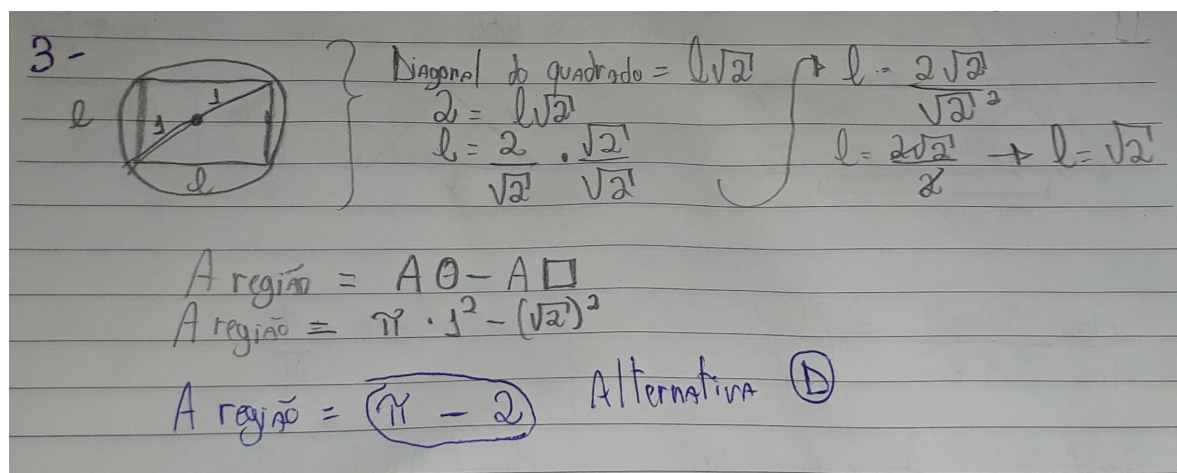 3-
l 1 1 l
Diagonal do quadrado = l√2
2 = l√2
l = 2/√2 . √2/√2
→ l = 2√2/√2²
l = 2√2/2 → l = √2
A região = A O - A □
A região = π . 1² - (√2)²
A região = π - 2 Alternativa D